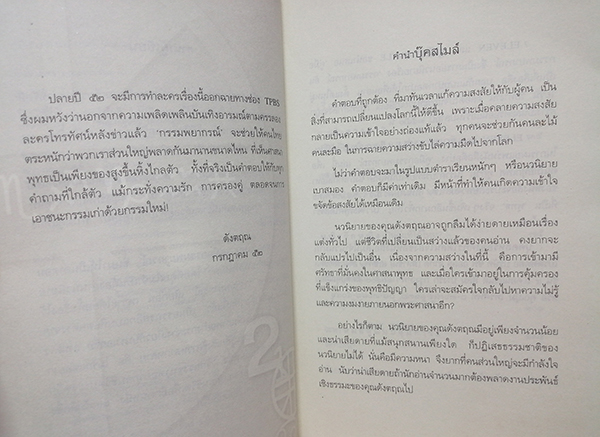 ปลายปี ๕๒ จะมีการทำละครเรื่องนี้ออกฉายทางช่อง TPBS
ซึ่งผมหวังว่านอกจากความเพลิดเพลินบันเทิงอารมณ์ตามครรลอง
ละครโทรทัศน์หลังข่าวแล้ว 'กรรมพยากรณ์' จะช่วยให้คนไทย
ตระหนักว่าพวกเราส่วนใหญ่พลาดกันมานานขนาดไหน ที่เห็นศาสนา
พุทธเป็นเพียงของสูงขึ้นหิ้งไกลตัว ทั้งที่จริงเป็นคำตอบให้กับทุก
คำถามที่ใกล้ตัว แม้กระทั่งความรัก การครองคู่ ตลอดจนการ
เอาชนะกรรมเก่าด้วยกรรมใหม่!
ดังตฤณ
กรกฎาคม ๕๒
คำนำบุ๊คสไมล์
คำตอบที่ถูกต้อง ที่มาทันเวลาแก้ความสงสัยให้กับผู้คน เป็น
สิ่งที่สามารถเปลี่ยนแปลงโลกนี้ให้ดีขึ้น เพราะเมื่อคลายความสงสัย
กลายเป็นความเข้าใจอย่างถ่องแท้แล้ว ทุกคนจะช่วยกันคนละไม้
คนละมือ ในการฉายความสว่างขับไล่ความมืดไปจากโลก
ไม่ว่าคำตอบจะมาในรูปแบบตำราเรียนหนักๆ หรือนวนิยาย
เบาสมอง คำตอบก็มีค่าเท่าเดิม มีหน้าที่ทำให้คนเกิดความเข้าใจ
ขจัดข้อสงสัยได้เหมือนเดิม
นวนิยายของคุณดังตฤณอาจถูกลืมได้ง่ายดายเหมือนเรื่อง
แต่งทั่วไป แต่ชีวิตที่เปลี่ยนเป็นสว่างแล้วของคนอ่าน คงยากจะ
กลับแปรไปเป็นอื่น เนื่องจากความสว่างในที่นี้ คือการเข้ามามี
ศรัทธาที่มั่นคงในศาสนาพุทธ และเมื่อใครเข้ามาอยู่ในการคุ้มครอง
ที่แข็งแกร่งของพุทธิปัญญา ใครเล่าจะสมัครใจกลับไปหาความไม่รู้
และความงมงายภายนอกพระศาสนาอีก?
อย่างไรก็ตาม นวนิยายของคุณดังตฤณมีอยู่เพียงจำนวนน้อย
และน่าเสียดายที่แม้สนุกสนานเพียงใด ก็ปฏิเสธธรรมชาติของ
นวนิยายไม่ได้ นั่นคือมีความหนา จึงยากที่คนส่วนใหญ่จะมีกำลังใจ
อ่าน นับว่าน่าเสียดายถ้านักอ่านจำนวนมากต้องพลาดงานประพันธ์
เชิงธรรมะของคุณดังตฤณไป